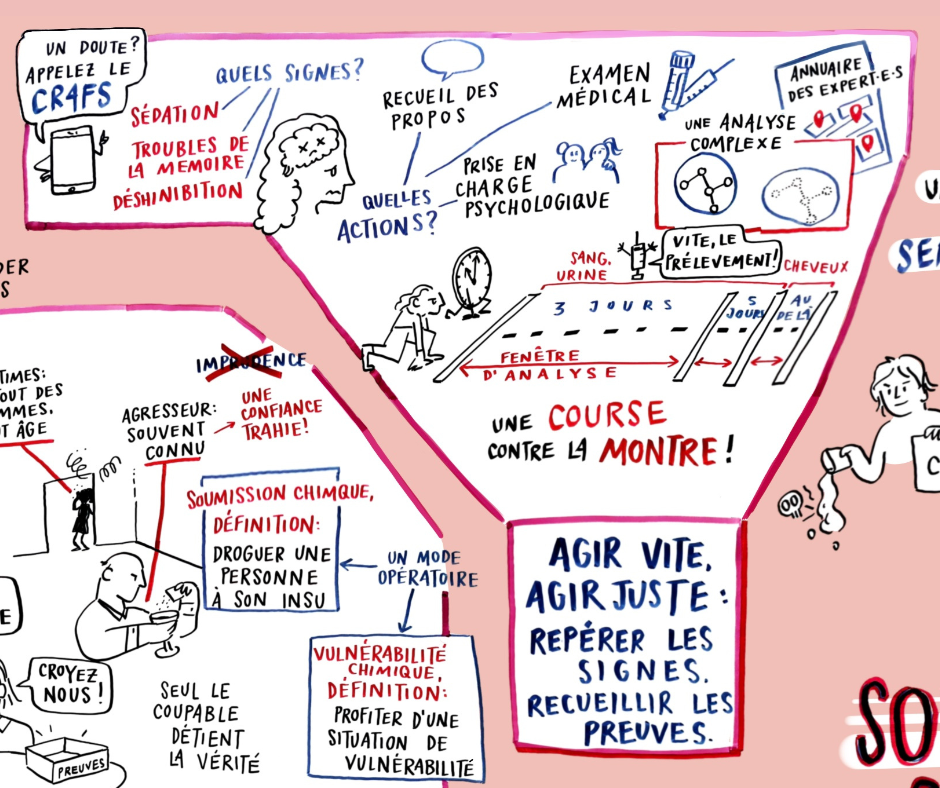 UN DOUTE?
APPELEZ LE
CR4FS
QUELS SIGNES?
SÉDATION
TROUBLES DE
LA MEMOIRE
DÉSHINIBITION
RECUEIL DES
PROPOS
EXAMEN
MÉDICAL
PRISE EN
CHARGE
PSYCHOLOGIQUE
QUELLES
ACTIONS?
ANNUAIRE
DES EXPERT·E·S
UNE ANALYSE
COMPLEXE
VITE, LE
PRÉLEVEMENT!
SANG,
URINE
CHEVEUX
3 JOURS
5
JOURS
AU
DELÀ
FENÊTRE
D'ANALYSE
UNE COURSE
CONTRE LA MONTRE!
AGIR VITE,
AGIR JUSTE:
REPÉRER LES
SIGNES.
RECUEILLIR LES
PREUVES.
IMPRUDENCE
AGRESSEUR:
SOUVENT
CONNU
UNE
CONFIANCE
TRAHIE!
SOUMISSION CHIMQUE,
DÉFINITION:
DROGUER UNE
PERSONNE
À SON INSU
UN MODE
OPÉRATOIRE
VULNÉRABILITÉ
CHIMIQUE,
DÉFINITION:
PROFITER D'UNE
SITUATION DE
VULNÉRABILITÉ
CROYEZ
NOUS!
PREUVES
SEUL LE
COUPABLE
DÉTIENT
LA VÉRITÉ